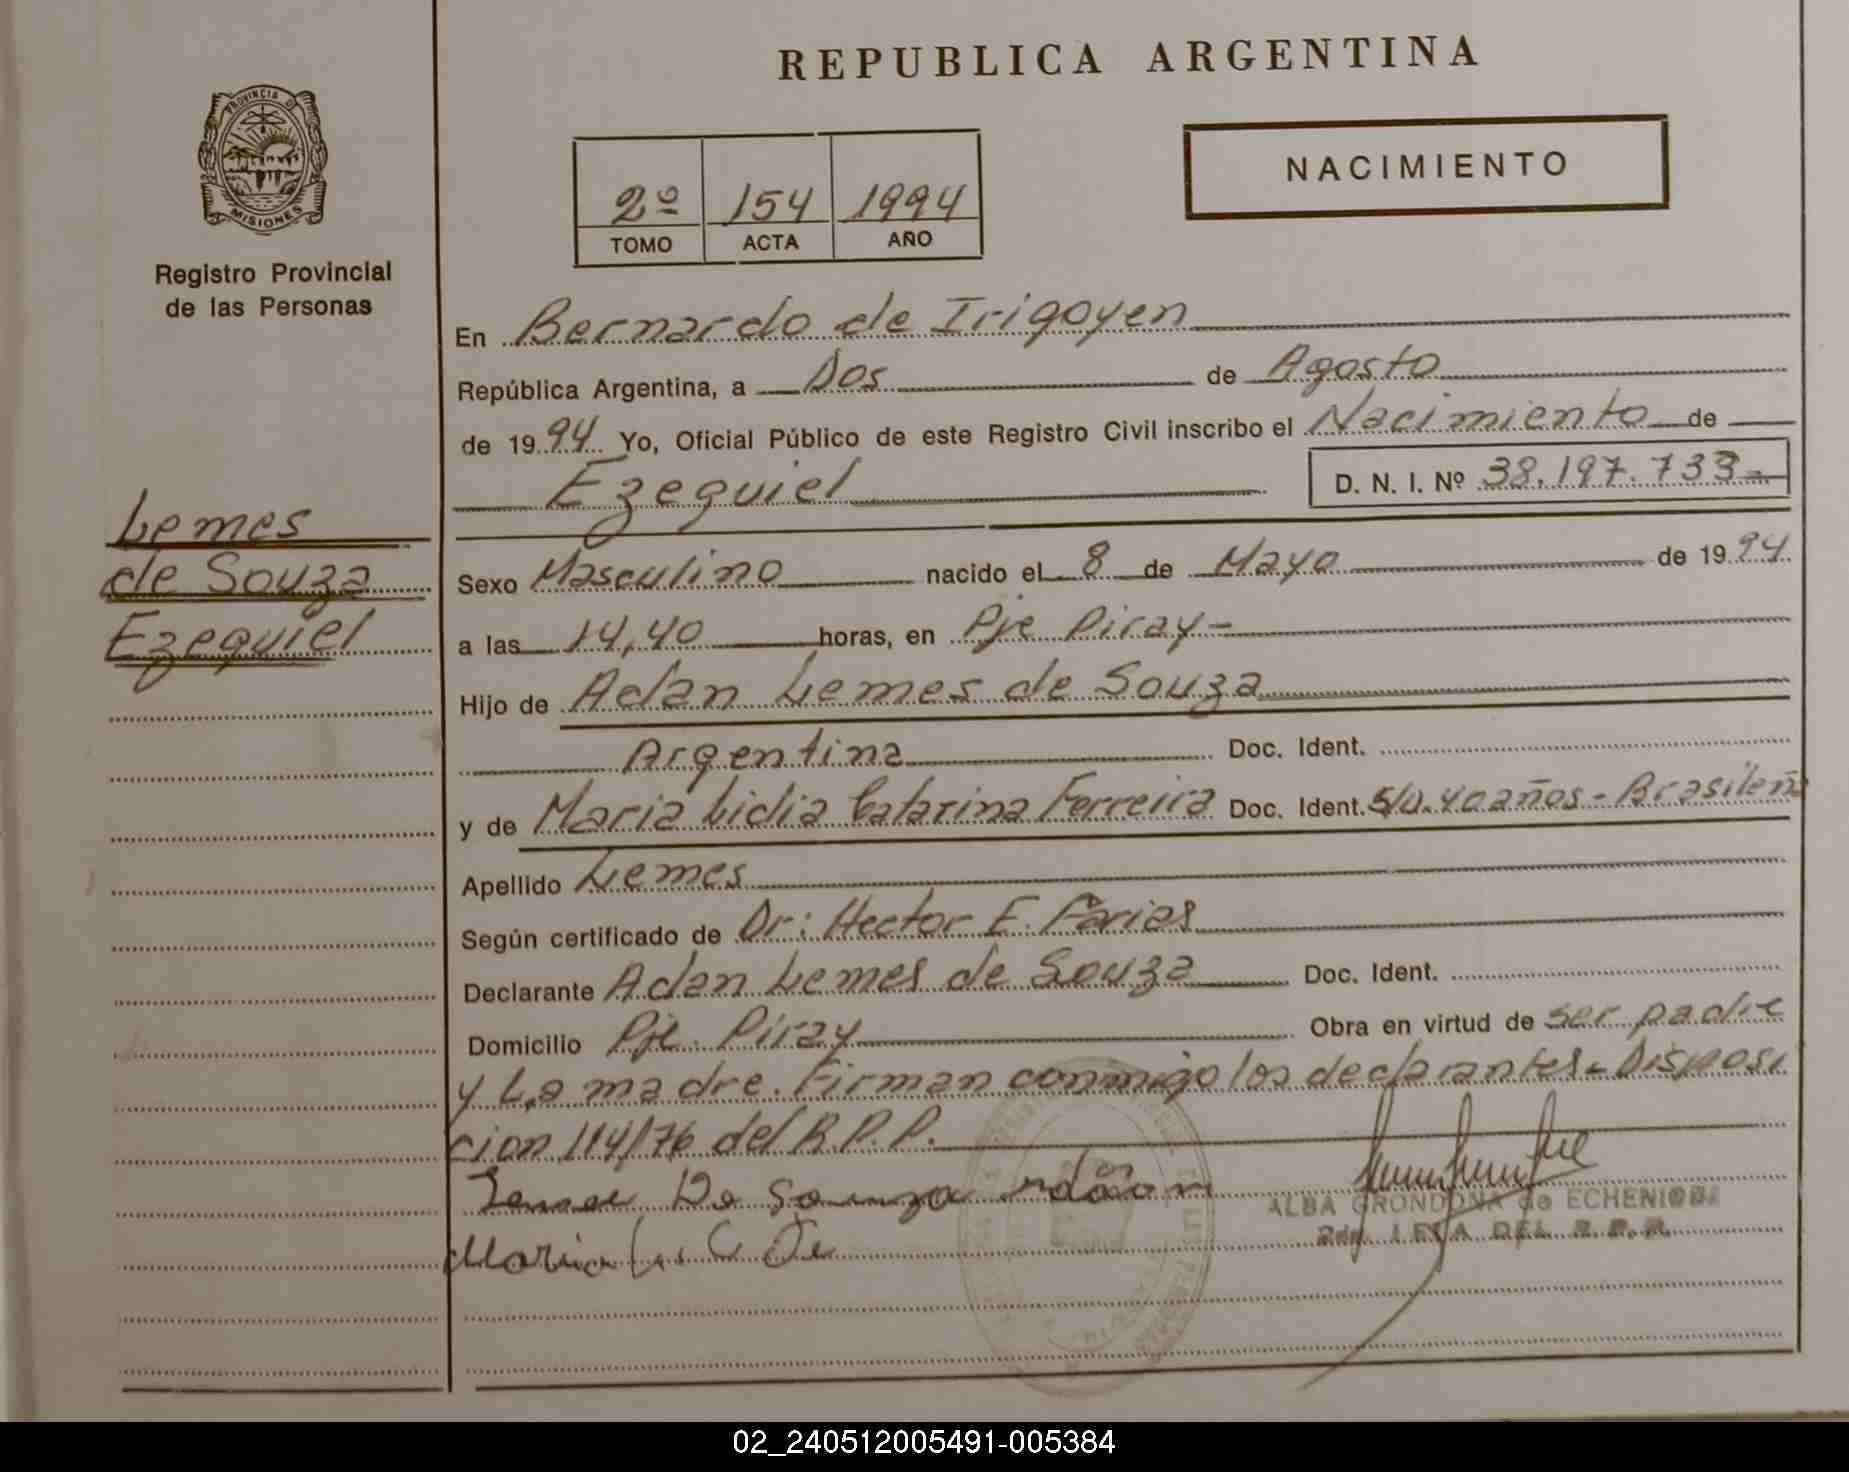 REPUBLICA ARGENTINA
PROVINCIA DE MISIONES
Registro Provincial
de las Personas
2º 154 1994
TOMO ACTA AÑO
NACIMIENTO
Lemes
de Souza
Ezequiel
En Bernardo de Irigoyen
República Argentina, a Dos de Agosto
de 1994 Yo, Oficial Público de este Registro Civil inscribo el Nacimiento de
Ezequiel D. N. I. Nº 38.197.733
Sexo Masculino nacido el 8 de Mayo de 1994
a las 14,40 horas, en Pje Piray-
Hijo de Adan Lemes de Souza
Argentina Doc. Ident.
y de Maria Lidia Catarina Ferreira Doc. Ident. S/D. 40 años - Brasileña
Apellido Lemes
Según certificado de Dr: Hector E. Farias
Declarante Adan Lemes de Souza Doc. Ident.
Domicilio Pje. Piray Obra en virtud de ser padre
y La madre. Firman conmigo los declarantes - Disposi
cion 114/76 del R.P.P.
De Souza
Maria
ALBA GRONDONA de ECHENIQUE
DEL R.P.P.
02_240512005491-005384